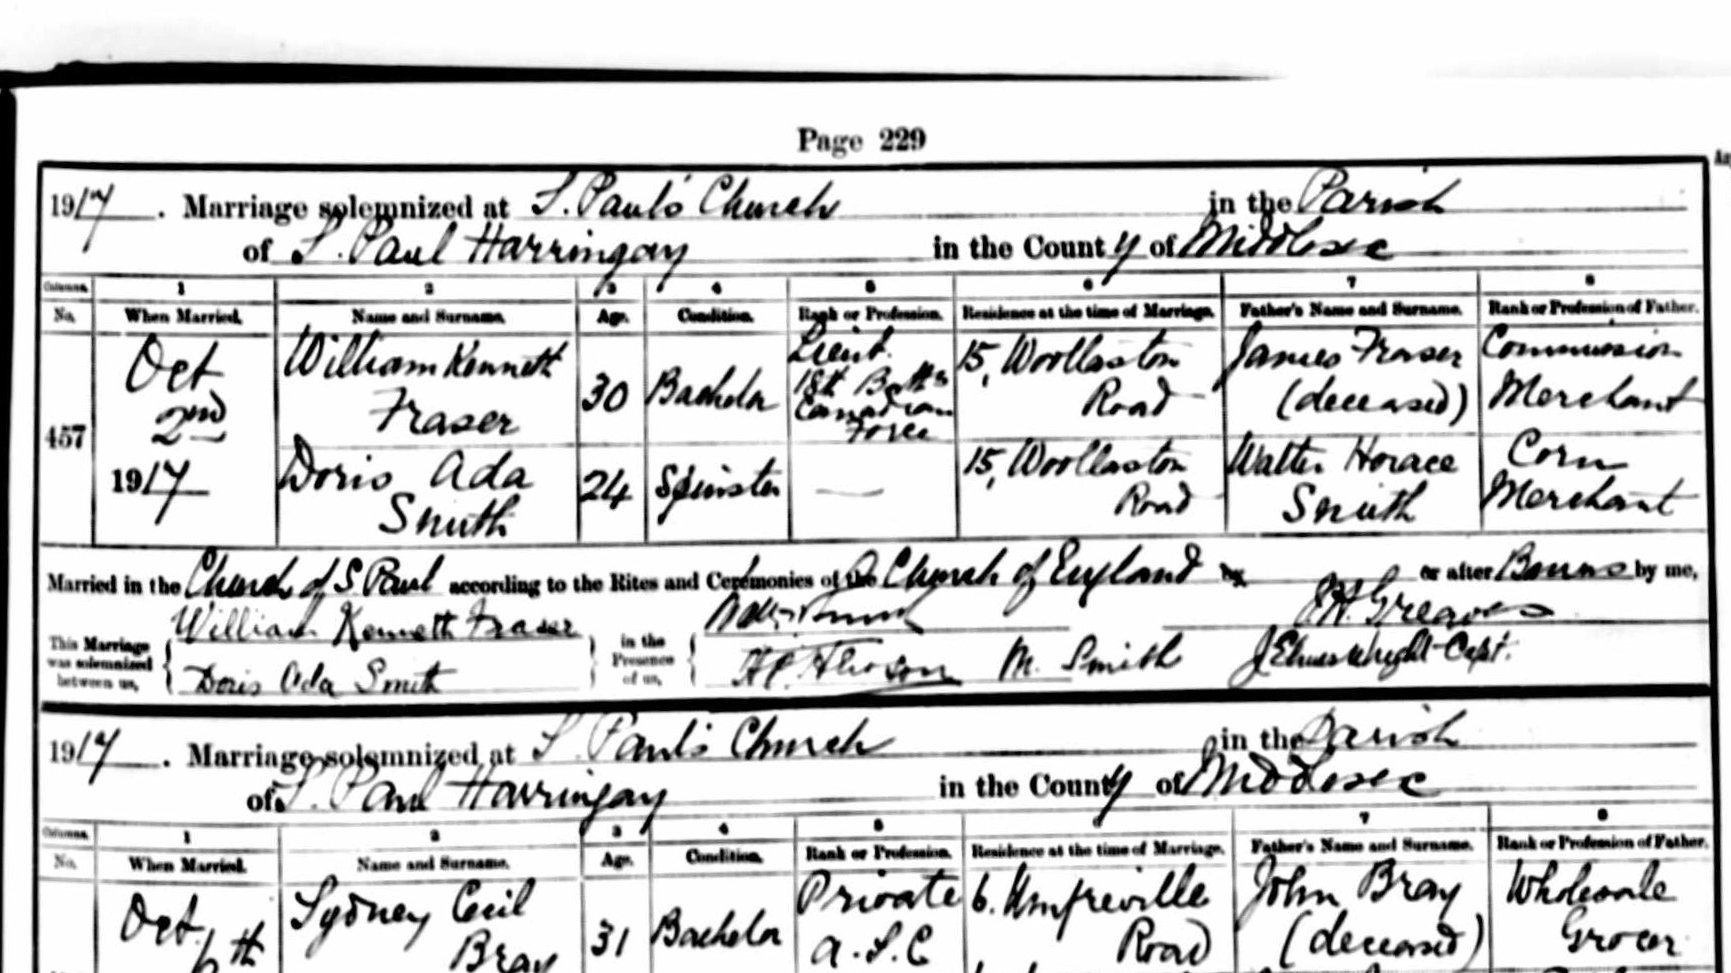 Page 229
1917. Marriage solemnized at S. Paul's Church in the Parish
of S. Paul Harringay in the County of Middlesex
Columns. 1 2 3 4 5 6 7 8
No. When Married. Name and Surname. Age. Condition. Rank or Profession. Residence at the time of Marriage. Father's Name and Surname. Rank or Profession of Father.
457
Oct
2nd
1917
William Kenneth
Fraser
30
Bachelor
Lieut.
18th Battn
Canadian
Force
15, Woollaston
Road
James Fraser
(deceased)
Commission
Merchant
Doris Ada
Smith
24
Spinster
—
15, Woollaston
Road
Walter Horace
Smith
Corn
Merchant
Married in the Church of S Paul according to the Rites and Ceremonies of the Church of England or after Banns by me,
Greaves
This Marriage
was solemnized
between us,
William Kenneth Fraser
Doris Ada Smith
in the
Presence
of us,
M. Smith
Capt.
1917. Marriage solemnized at S. Paul's Church in the Parish
of S. Paul Harringay in the County of Middlesex
Columns. 1 2 3 4 5 6 7 8
No. When Married. Name and Surname. Age. Condition. Rank or Profession. Residence at the time of Marriage. Father's Name and Surname. Rank or Profession of Father.
Oct.
6th
Sydney Cecil
Bray
31
Bachelor
Private
A.S.C
6. Umfreville
Road
John Bray
(deceased)
Wholesale
Grocer